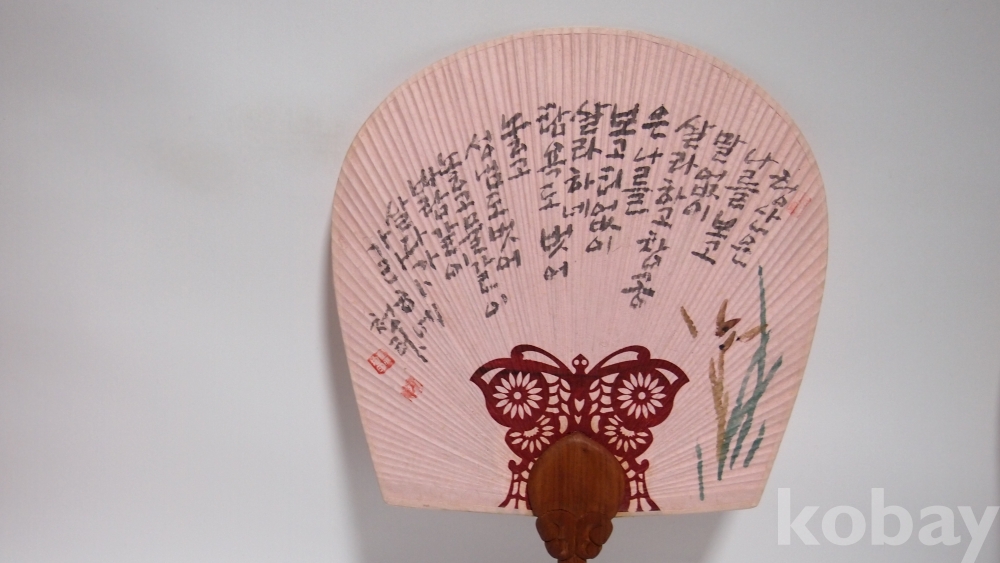 청산은
나를 보고
말 없이
살라하고 창공
은 나를
보고 티없이
살라하네
탐욕도 벗어
놓고
성냄도 벗어
놓고
바람
살다가
kobay